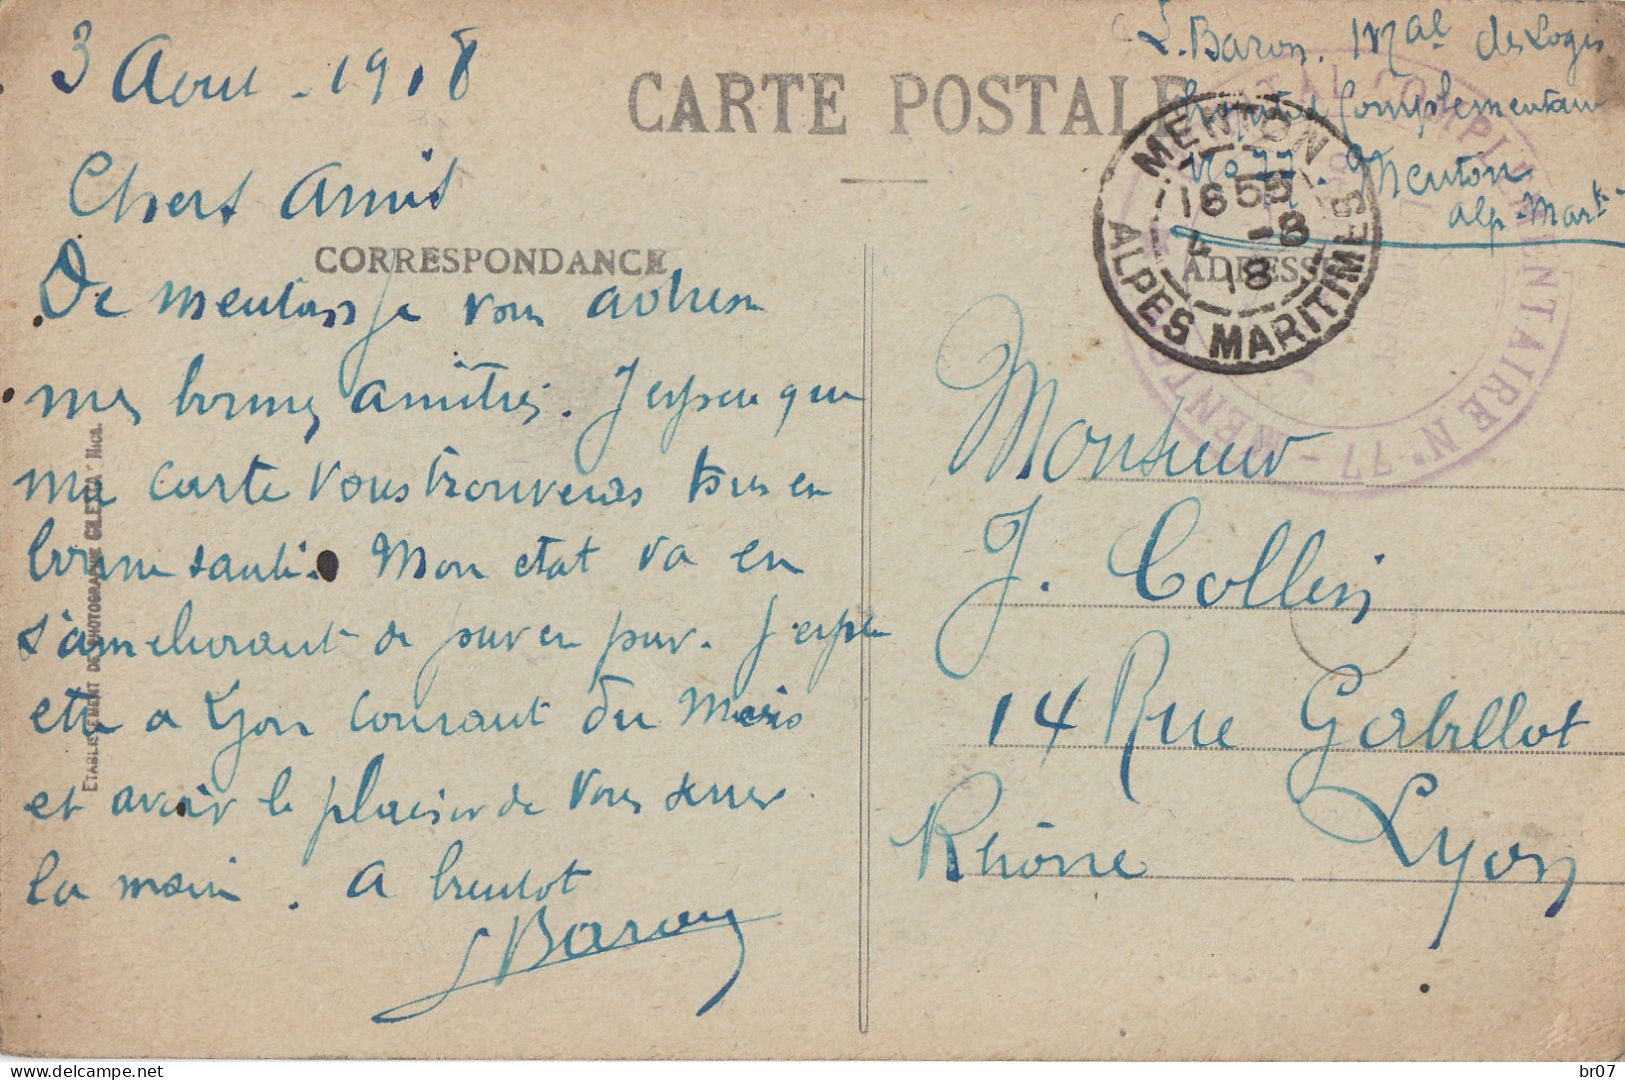 3 Aout - 1918
Chers Amis
CARTE POSTALE
CORRESPONDANCE
De menton je vous adresse
mes bonnes amitiés. J'espere que
ma carte vous trouveras tous en
bonne santé. Mon etat va en
s'ameliorant de jour en jour. J'espere
etre a Lyon courant du mois
et avoir le plaisir de vous serrer
la main. A bientot
L Baron
ETABLISSEMENT DE PHOTOGRAPHIE GILETTA NICE.
L. Baron. Mal des Logis
hopital Complementaire
No 77. Menton
Alp-Marit
MENTON
16 55
4 -8
18
ALPES MARITIMES
COMPLEMENTAIRE N° 77 - MENTON
ADRESSE
Monsieur
J. Collin
14 Rue Gabillot
Rhône Lyon
br07